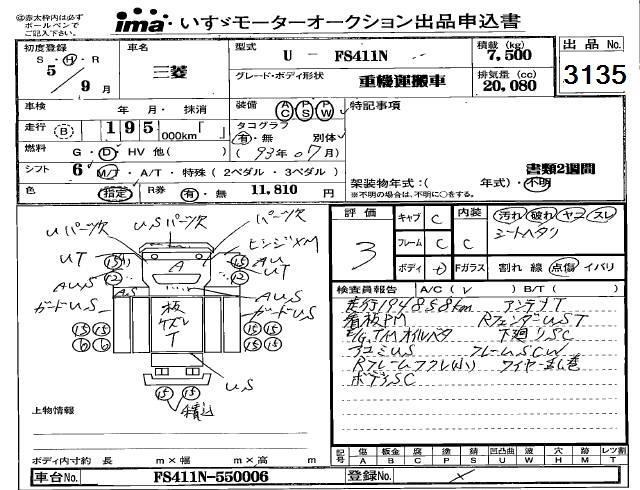 ①赤太枠内は必ず
ボールペンで
ご記入下さい。
ima いすゞモーターオークション出品申込書
初度登録
S・H・R
5年9月
車名
三菱
型式
U - FS411N
積載 (kg)
7,500
出品No.
3135
グレード・ボディ形状
重機運搬車
排気量 (cc)
20,080
車検 年・月・抹消
装備
AC PS PW
特記事項
走行 (B) 195,000km「 」
タコグラフ
有・無 別体
燃料 G・D・HV 他( )
(93年07月)
シフト 6 M/T・A/T・特殊(2ペダル・3ペダル)
書類2週間
色 指定 R券 有・無 11,810 円
架装物年式:( 年式)・不明
※不明の場合は、不明に○をする。
評価
3
キャブ C
フレーム C
ボディ D
内装 C
Fガラス
汚れ 破れ ヤニ スレ
シートヘタリ
割れ 線 点傷 イバリ
UパーツX
USパーツX
パーツX
ヒンジXM
UT
AU
UT
15
12
AUS
A
AUS
ガードUS
板
ケズレ
T
15 15
6 6
15 15
US
積込
検査員報告 A/C( ν ) B/T( )
走行194858km アンテナT
看板PM RフェンダーUST
E/G,TMオイルベタ 下廻りSC
アユミUS フレームSCW
Rフレームフクレ(小) ワイヤー乱巻
ボデーSC
上物情報
ボディ内寸約 長 m×幅 m×高 m
記号
傷 A
板金 B
腐 C
塗 P
錆 S
凹凸曲 U
波 W
穴 H
跡 M
レツ割 T
車台No. FS411N-550006
登録No.